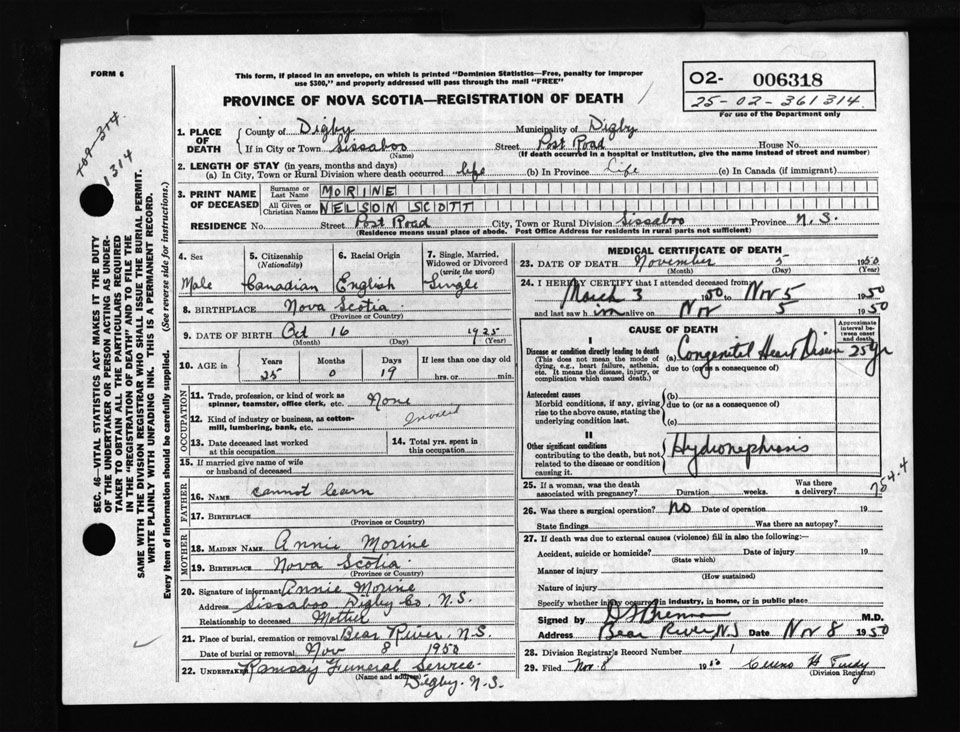 FORM 6
This form, if placed in an envelope, on which is printed "Dominion Statistics—Free, penalty for improper
use $300," and properly addressed will pass through the mail "FREE"
PROVINCE OF NOVA SCOTIA—REGISTRATION OF DEATH
O2- 006318
25-02-361314
For use of the Department only
1314
SEC. 46—VITAL STATISTICS ACT MAKES IT THE DUTY
OF THE UNDERTAKER OR PERSON ACTING AS UNDER-
TAKER TO OBTAIN ALL THE PARTICULARS REQUIRED
IN THE "REGISTRATION OF DEATH" AND TO FILE THE
SAME WITH THE DIVISION REGISTRAR WHO SHALL ISSUE THE BURIAL PERMIT.
WRITE PLAINLY WITH UNFADING INK. THIS IS A PERMANENT RECORD.
Every item of information should be carefully supplied. (See reverse side for instructions.)
1. PLACE OF DEATH County of Digby Municipality of Digby
If in City or Town Sissaboo Street Post Road House No.
(Name) (If death occurred in a hospital or institution, give the name instead of street and number)
2. LENGTH OF STAY (in years, months and days)
(a) In City, Town or Rural Division where death occurred life (b) In Province Life (c) In Canada (if immigrant)
3. PRINT NAME OF DECEASED Surname or Last Name MORINE
All Given or Christian Names NELSON SCOTT
RESIDENCE No. Street Post Road City, Town or Rural Division Sissaboo Province N.S.
(Residence means usual place of abode. Post Office Address for residents in rural parts not sufficient)
4. Sex 5. Citizenship (Nationality) 6. Racial Origin 7. Single, Married, Widowed or Divorced (write the word)
Male Canadian English Single
8. BIRTHPLACE Nova Scotia
(Province or Country)
9. DATE OF BIRTH Oct 16 1925
(Month) (Day) (Year)
10. AGE in Years Months Days If less than one day old
25 0 19 hrs. or min.
OCCUPATION
11. Trade, profession, or kind of work as
spinner, teamster, office clerk, etc. None
12. Kind of industry or business, as cotton-
mill, lumbering, bank, etc. Invalid
13. Date deceased last worked
at this occupation
14. Total yrs. spent in
this occupation
15. If married give name of wife
or husband of deceased
FATHER
16. Name cannot learn
17. Birthplace
(Province or Country)
MOTHER
18. Maiden Name Annie Morine
19. Birthplace Nova Scotia
(Province or Country)
20. Signature of informant Annie Morine
Address Sissaboo Digby Co. N.S.
Relationship to deceased Mother
21. Place of burial, cremation or removal Bear River, N.S.
Date of burial or removal Nov 8 1950
22. Undertaker Ramsay Funeral Service
(Name and address)
Digby. N.S.
MEDICAL CERTIFICATE OF DEATH
23. DATE OF DEATH November 5 1950
(Month) (Day) (Year)
24. I HEREBY CERTIFY that I attended deceased from
March 3 1950 to Nov 5 1950
and last saw him alive on Nov 5 1950
CAUSE OF DEATH
Approximate interval between onset and death
I
Disease or condition directly leading to death
(This does not mean the mode of
dying, e.g., heart failure, asthenia,
etc. It means the disease, injury, or
complication which caused death.)
(a) Congenital Heart Disease 25 yr
due to (or as a consequence of)
Antecedent causes
Morbid conditions, if any, giving
rise to the above cause, stating the
underlying condition last.
(b)
due to (or as a consequence of)
(c)
II
Other significant conditions
contributing to the death, but not
related to the disease or condition
causing it.
Hydronephrosis
754.4
25. If a woman, was the death
associated with pregnancy? Duration weeks. Was there a delivery?
26. Was there a surgical operation? no Date of operation 19
State findings Was there an autopsy?
27. If death was due to external causes (violence) fill in also the following:—
Accident, suicide or homicide? Date of injury 19
(State which)
Manner of injury
(How sustained)
Nature of injury
Specify whether injury occurred in industry, in home, or in public place
Signed by M.D.
Address Bear River N.S Date Nov 8 1950
28. Division Registrar's Record Number 1
29. Filed Nov. 8 1950
(Division Registrar)